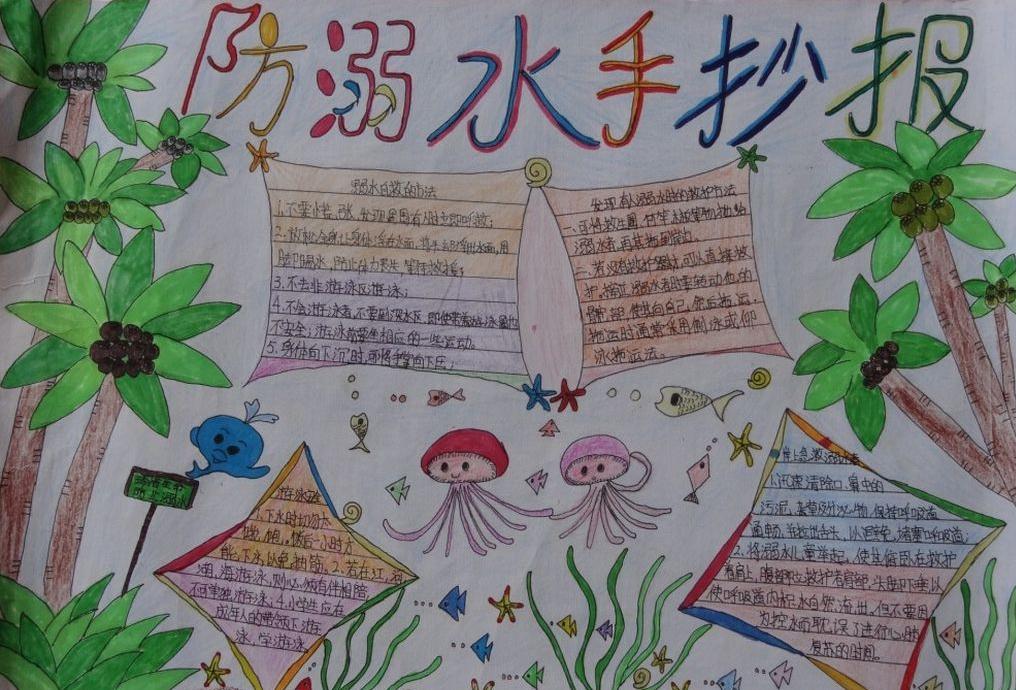 防溺水手抄报
溺水自救的方法
1.不要慌张,发现周围有人时立即呼救;
2.放松全身,让身体浮在水面,将手部浮出水面,用
脚踢水,防止体力丧失,等待救援;
3.不去非游泳区游泳;
4.不会游泳者,不要到深水区,即使带着游泳圈也
不安全;游泳前要做相应的一些运动。
5.身体向下沉时,可将手掌向下压;
发现有人溺水时的救护方法
一.可将救生圈、竹竿、木板等物抛给
溺水者,再其拖至岸边。
二.若没有救护器材,可以直接救
护。接近溺水者时要转动他的
髋部,使其向自己,然后拖运。
拖运时通常采用侧泳或仰
泳拖运法。
游泳
1.下水时切勿太
饿、饱。饭后一小时才
能下水,以免抽筋。2.若在江、河
湖、海游泳,则必须有伴相陪
不可单独游泳;4.小学生应在
成年人的带领下游
泳,学游泳。
岸上急救溺水者
1.迅速清除口、鼻中的
污泥、杂草及分泌物,保持呼吸道
通畅,并拉出舌头,以避免堵塞呼吸道;
2.将溺水儿童举起,使其俯卧在救护
者肩上,腹部紧贴救护者肩部,头脚下垂,以
使呼吸道内积水自然流出。但不要因
为控水而耽误了进行心肺
复苏的时间。